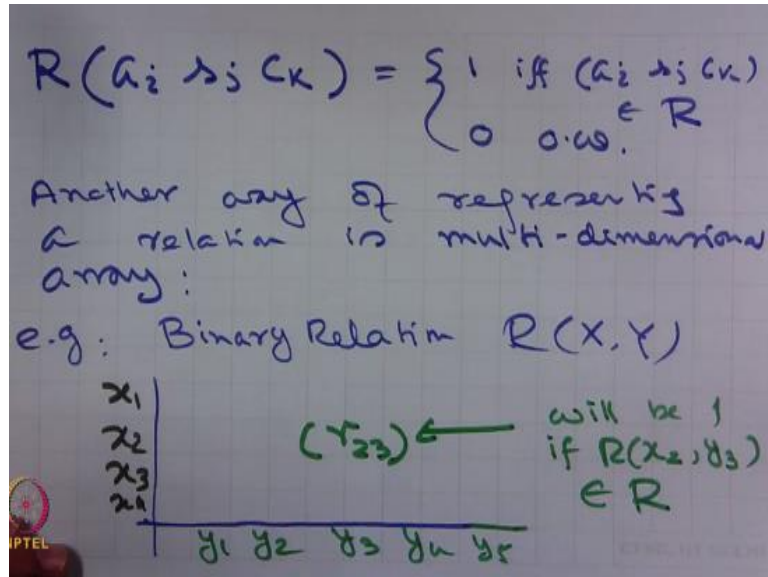 R(ai sj ck) = { 1 iff (ai sj ck) ∈ R
0 o.w.
Another way of representing
a relation is multi-dimensional
array:
e.g: Binary Relation R(X,Y)
x1
x2 (r23) ← will be 1
if R(x2, y3)
x3
∈ R
x4
y1 y2 y3 y4 y5
NPTEL